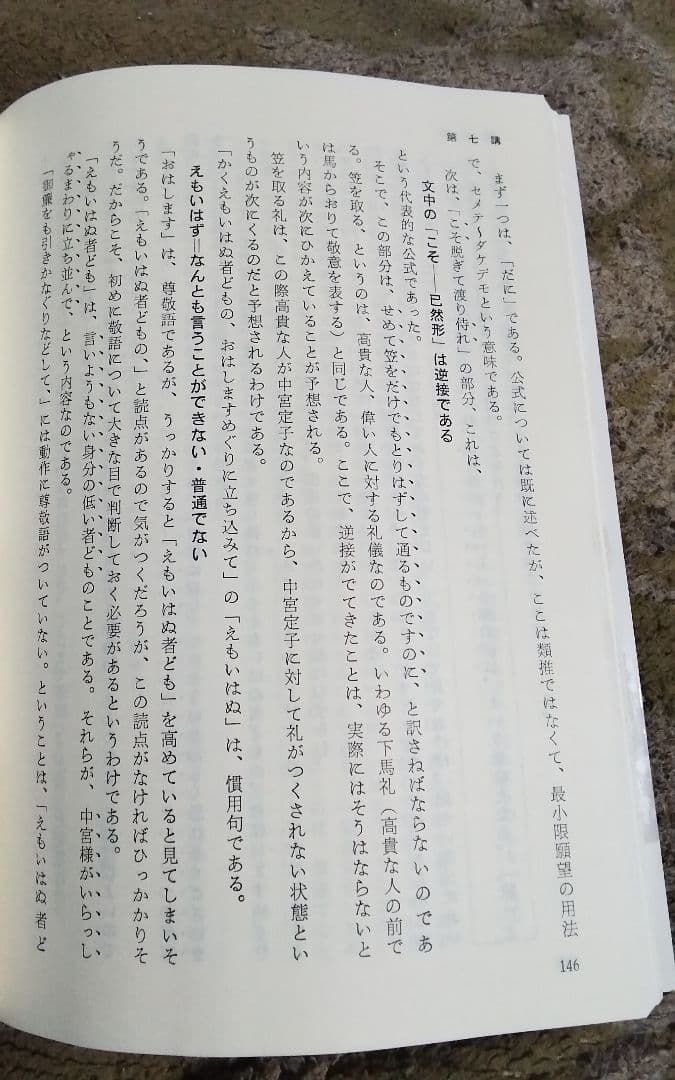 第七講
まず一つは、「だに」である。公式については既に述べたが、ここは類推ではなくて、最小限願望の用法
で、セメテ〜ダケデモという意味である。
次は、「こそ脱ぎて渡り侍れ」の部分、これは、
文中の「こそ——已然形」は逆接である
という代表的な公式であった。
そこで、この部分は、せめて笠をだけでもとりはずして通るものですのに、と訳さねばならないのであ
る。笠を取る、というのは、高貴な人、偉い人に対する礼儀なのである。いわゆる下馬礼（高貴な人の前で
は馬からおりて敬意を表する）と同じである。ここで、逆接がでてきたことは、実際にはそうはならないと
いう内容が次にひかえていることが予想される。
笠を取る礼は、この際高貴な人が中宮定子なのであるから、中宮定子に対して礼がつくされない状態とい
うものが次にくるのだと予想されるわけである。
「かくえもいはぬ者どもの、おはしますめぐりに立ち込みて」の「えもいはぬ」は、慣用句である。
えもいはず＝なんとも言うことができない・普通でない
「おはします」は、尊敬語であるが、うっかりすると「えもいはぬ者ども」を高めていると見てしまいそ
うである。「えもいはぬ者どもの、」と読点があるので気がつくだろうが、この読点がなければひっかかりそ
うだ。だからこそ、初めに敬語について大きな目で判断しておく必要があるというわけである。
「えもいはぬ者ども」は、言いようもない身分の低い者どものことである。それらが、中宮様がいらっし
ゃるまわりに立ち並んで、という内容なのである。
「御簾をも引きかなぐりなどして、」には動作に尊敬語がついていない。ということは、「えもいはぬ者ど
146